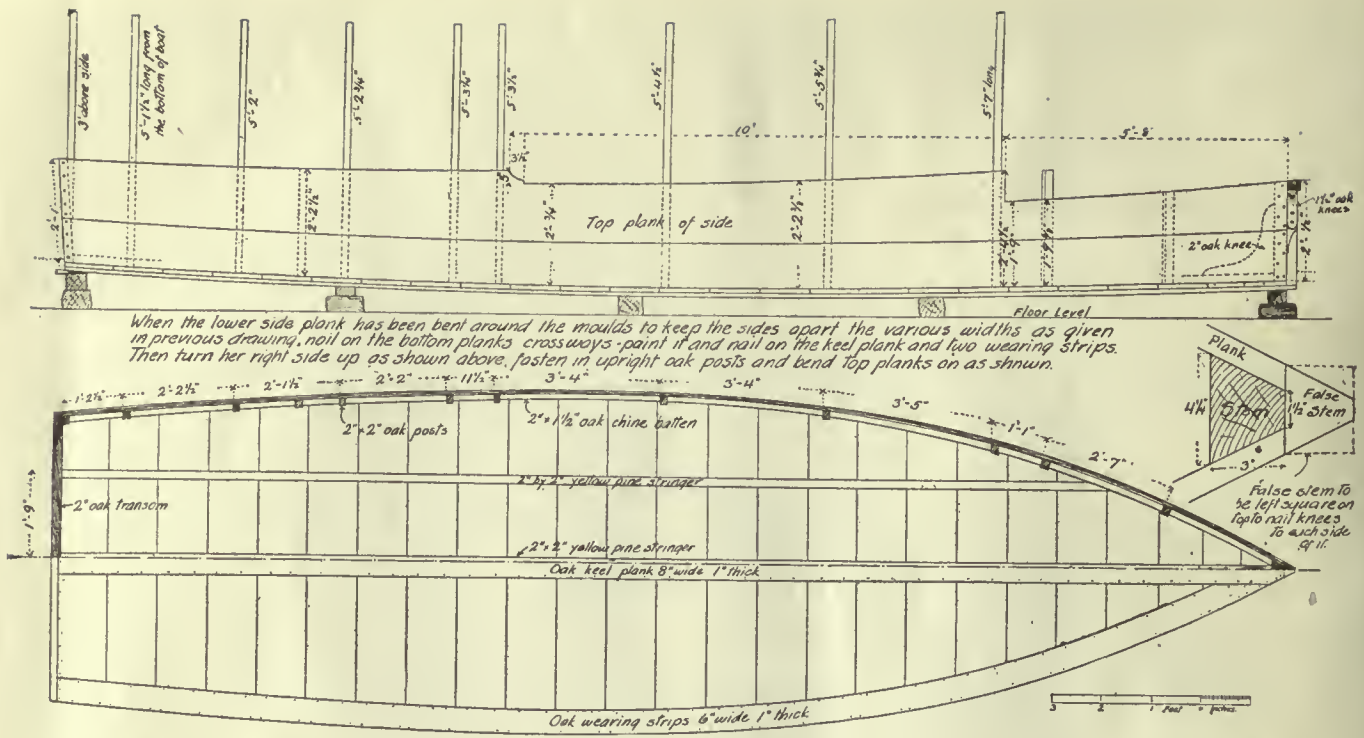 3' above side
5'-1½" long from
the bottom of boat
5'-2"
5'-2¾"
5'-3¼"
5'-3½"
5'-4½"
5'-5¾"
5'7" long
10'
5'-8"
3½"
5"
2'-1"
2'-2½"
2'-¾"
2'-2⅜"
2'-4½"
1'-9"
1'-9½"
2'-½"
Top plank of side
1½" oak
knees
2" oak knee
Floor Level
When the lower side plank has been bent around the moulds to keep the sides apart the various widths as given
in previous drawing, nail on the bottom planks crossways - paint it and nail on the keel plank and two wearing strips.
Then turn her right side up as shown above, fasten in upright oak posts and bend Top planks on as shnwn.
1'-2½"
2'-2½"
2'-1½"
2'-2"
11½"
3'-4"
3'-4"
3'-5"
1'-1"
2'-7"
2"×2" oak posts
2"×1½" oak chine batten
2" by 2" yellow pine stringer
2" oak transom
1'-9"
2"×2" yellow pine stringer
Oak keel plank 8" wide 1" thick
Oak wearing strips 6" wide 1" thick
Plank
4¼"
Stem
False
1½" Stem
3"
False stem To
be left square on
top to nail knees
To each side
of it.
3 2 1 Feet Inches